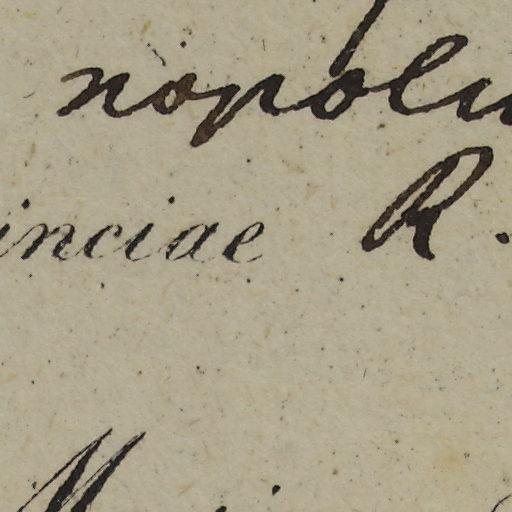 nopoli
inciae R.
M